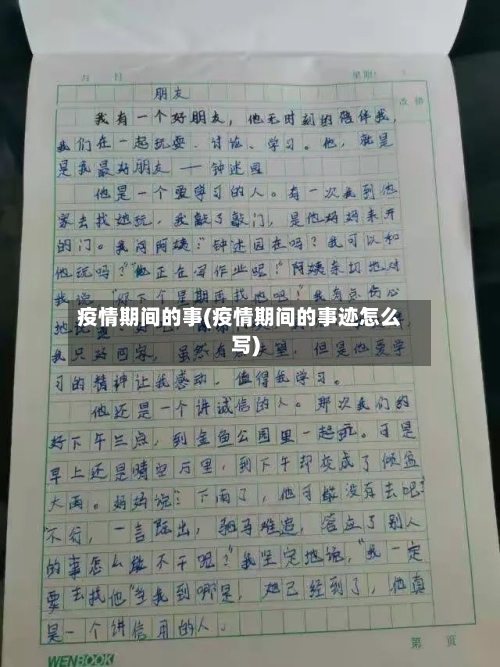 月 日 星期:
朋友
改错
我有一个好朋友,他无时刻的陪伴我,
我们在一起玩耍、讨论、学习。他,就是
是我最好朋友——钟述园
他是一个爱学习的人。有一次我到他
家去找他玩,我敲了敲门,是他妈妈来开
的门。我问阿姨:“钟述园在吗?我可以和
他玩吗?”“他正在写作业呢!”阿姨亲切地对
我说
疫情期间的事(疫情期间的事迹怎么
写)
我只好回家,虽然有 失望,但是他爱学
习的精神让我感动,值得我学习。
他还是一个讲诚信的人。那次我们约
好下午三点,到金鱼公园里一起玩。可是
早上还是晴空万里,到下午却变成了倾盆
大雨。妈妈说:“下雨了,他可能没有去吧?”
“不行,一言既出,驷马难追,答应了别人
的事怎么能不干呢?”我坚定地说,“我一定
要去找他”当我到哪是,他已经到了,他真
是一个讲信用的人。
WENBOOK
第 页